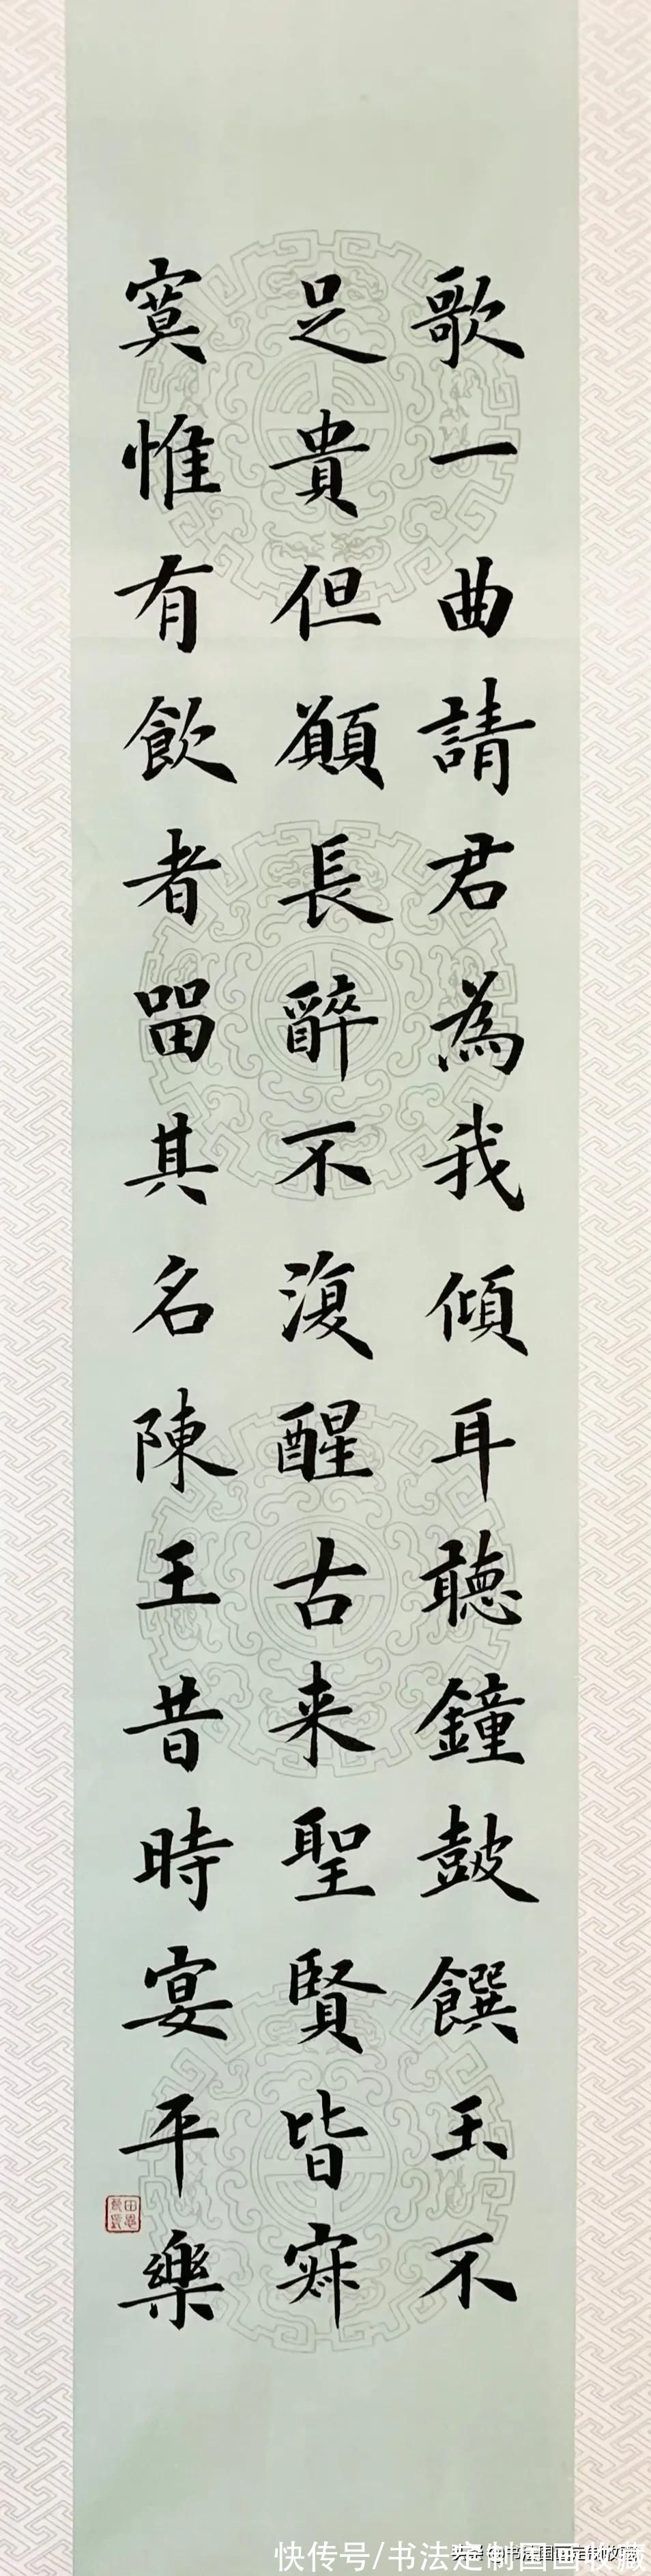 歌一曲請君為我傾耳聴鐘皷饌玉不
足貴但願長醉不復醒古来聖賢皆寂
寞惟有飲者留其名陳王昔時宴平樂
快传号/书法定制国画收藏